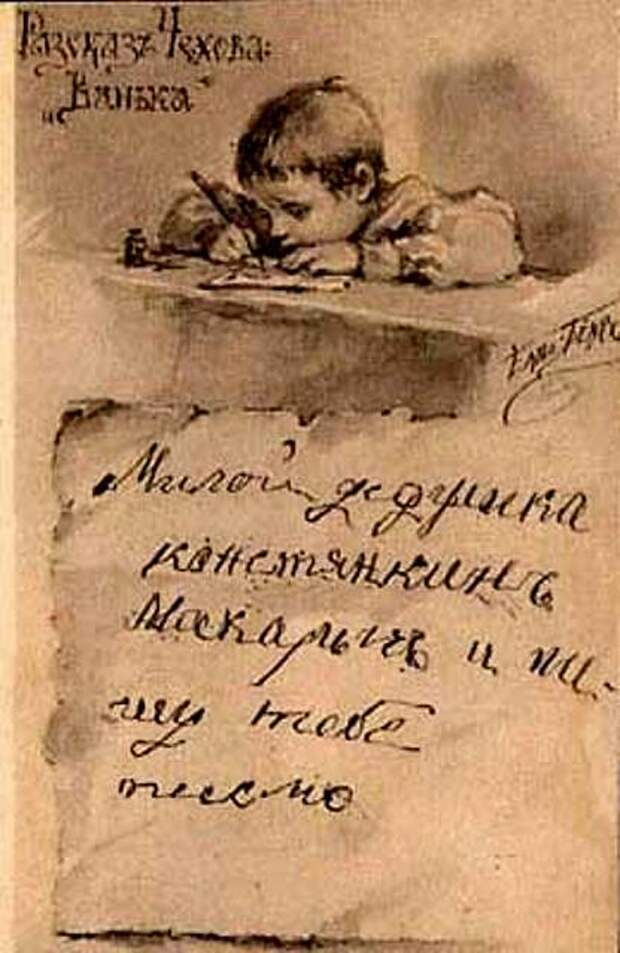 Разсказъ Чехова:
„Ванька“
Милой дедушка
констянкинъ
Маскарычъ и пи-
шу тебе
писсмо